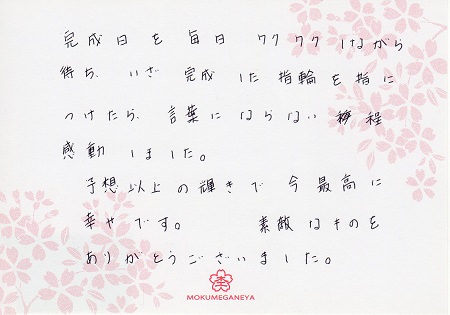 完成日を毎日ワクワクしながら
待ち、いざ完成した指輪を指に
つけたら、言葉にならない程
感動しました。
予想以上の輝きで今最高に
幸せです。 素敵なものを
ありがとうございました。
MOKUMEGANEYA